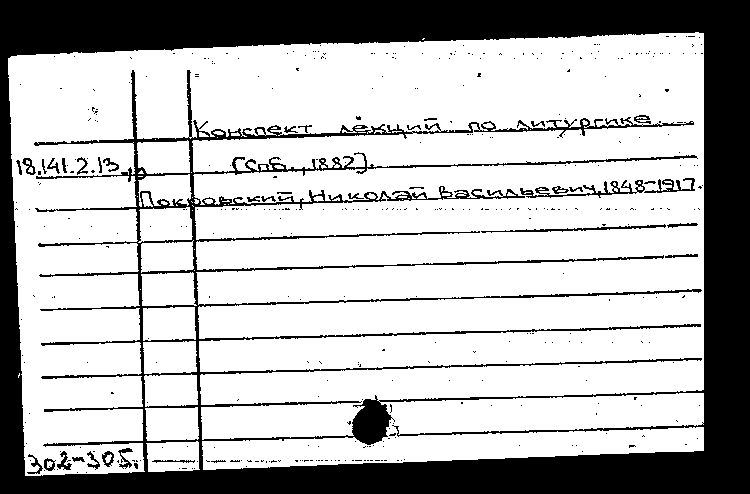 Конспект лекций по литургике
18.141.2.13 [Спб., 1882].
Покровский, Николай Васильевич, 1848-1917.
302-305.